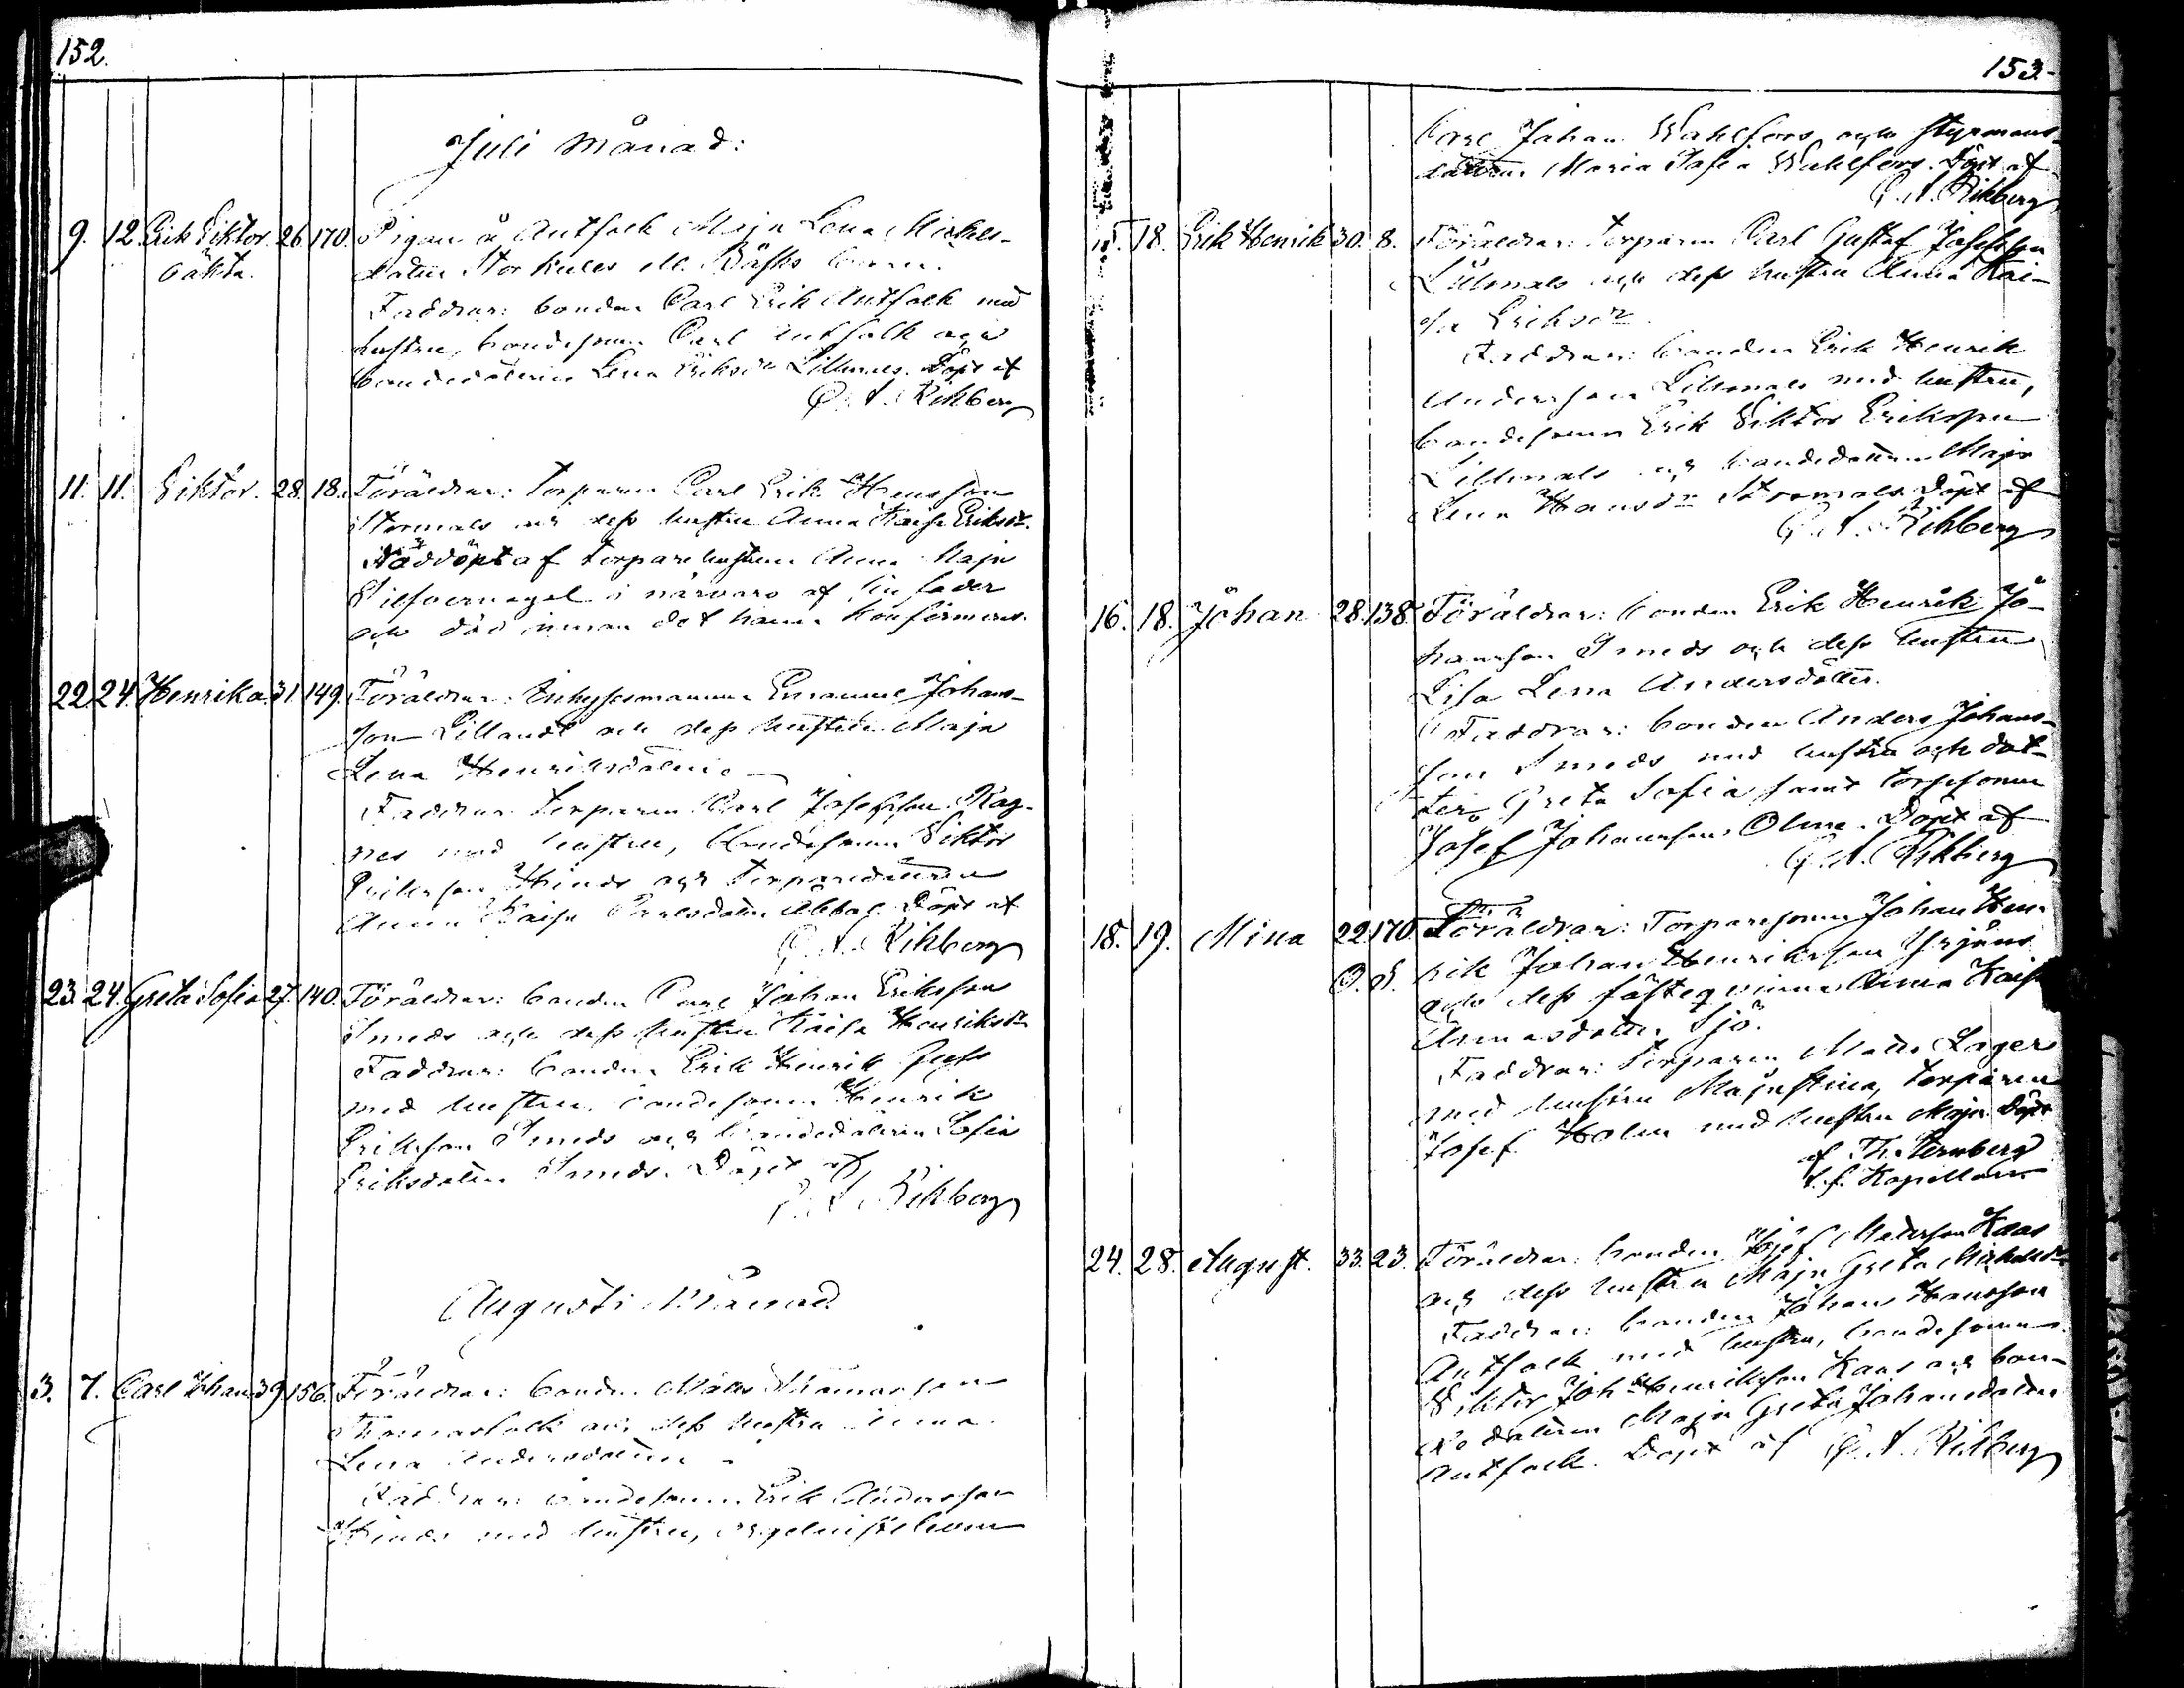 152.
Juli Månad:
9. 12. Erik Viktor 26. 170. Pigan å Antfolk Maja Lena Mickels-
oäkta. dotter Storkulls M. Bäcks barn.
Faddrar: bonden Carl Erik Antfolk med
hustru, bondesonen Carl Antfolk och
bondedottren Lena Eriksdr Lillmals. Döpt af
G. A. Rihberg
11. 11. Viktor. 28. 18. Föräldrar: torparen Carl Erik Hansson
Stormals och dess hustru Anna Kaisa Eriksdr.
Nöddöpt af torparehustrun Anna Maja
Silfvernagel i närvaro af sin fader
och död innan det hann konfirmeras.
22. 24. Henrika. 31. 149. Föräldrar: Inhysesmannen Emanuel Johans-
son Lillandt och dess hustru Maja
Lena Henriksdotter.
Faddrar: torparen Carl Josefsson
med hustru, bondesonen Viktor
Eriksson och torparedottren
Anna Kaisa Carlsdotter Abbal. Döpt af
G. A. Rihberg
23. 24. Greta Sofia 27. 140. Föräldrar: bonden Carl Johan Eriksson
Smeds och dess hustru Kaisa Henriksdr
Faddrar: bonden Erik Henrik
med hustru, bondesonen Henrik
Eriksson Smeds och bondedottren Sofia
Eriksdotter Smeds. Döpt af
G. A. Rihberg
Augusti Månad.
3. 7. Carl Johan 39. 156. Föräldrar: bonden Matts Thomasson
Thomasfolk och dess hustru Anna
Lena Andersdotter.
Faddrar: bondesonen Erik Andersson
med hustru,
153.
Carl Johan Wahlfors och styrmans-
dottren Maria Sofia Wahlfors. Döpt af
G. A. Rihberg
15. 18. Erik Henrik 30. 8. Föräldrar: torparen Carl Gustaf Josefsson
Lillmals och dess hustru Anna Kai-
sa Eriksdr
Faddrar: bonden Erik Henrik
Andersson Lillmals med hustru,
bondesonen Erik Viktor Eriksson
Lillmals och bondedottren Maja
Lena Hansdr Stormals. Döpt af
G. A. Rihberg
16. 18. Johan 28. 138. Föräldrar: bonden Erik Henrik Jo-
hansson Smeds och dess hustru
Lisa Lena Andersdotter.
Faddrar: bonden Anders Johans-
son Smeds med hustru och dot-
ter Greta Sofia samt torpesonen
Josef Johansson Olme. Döpt af
G. A. Rihberg
18. 19. Mina 22. 170. Föräldrar: Torparesonen Johan Hen-
O. S. rik Johan Henriksson Yrjäns
och dess fästeqvinna Anna Kaisa
dotter Sjö.
Faddrar: Torparen Matts Lager
med hustru Majastina, torparen
Josef Holm med hustru Maja. Döpt
af Th. Sernberg
t.f. Kapellan
24. 28. August. 33. 23. Föräldrar: bonden Josef Mattsson Kaas
och dess hustru Maja Greta Mickelsdr
Faddrar: bonden Johan Hansson
Antfolk med hustru, bondesonen
Viktor Joh. Henriksson Kaas och bon-
dedottren Maja Greta Johansdotter
Antfolk. Döpt af G. A. Rihberg